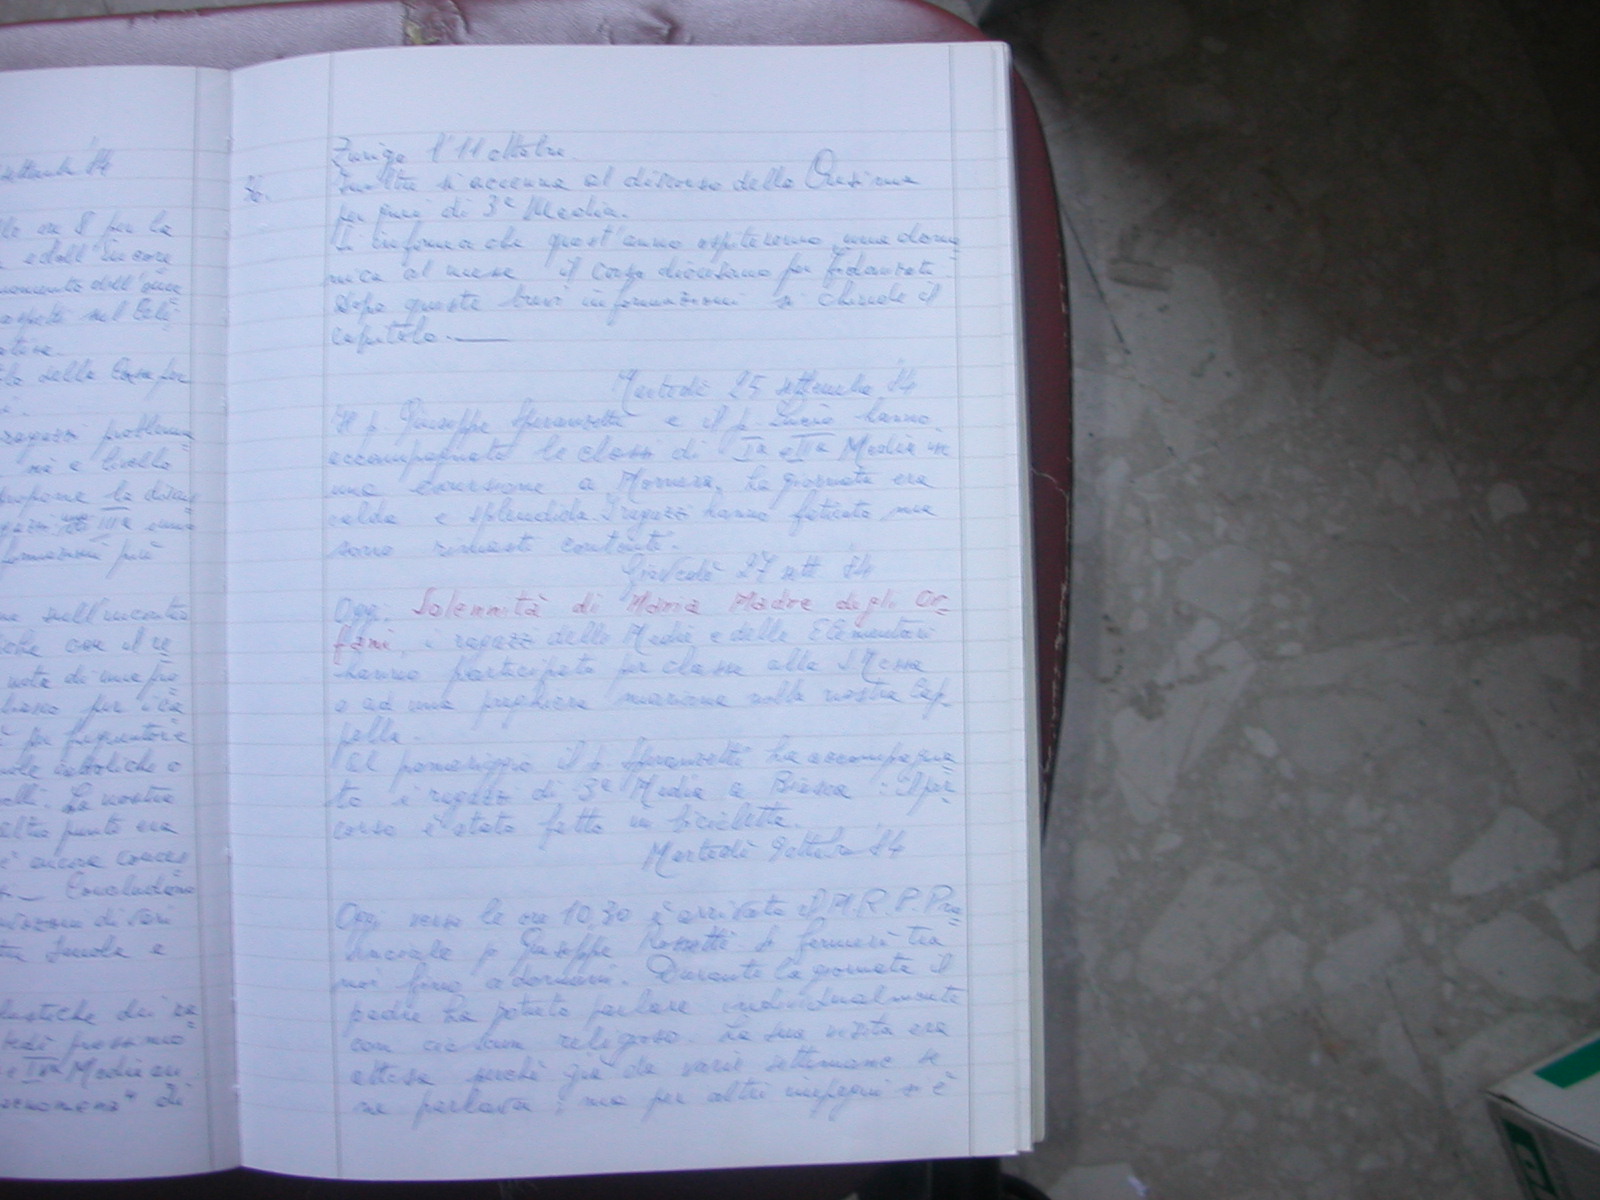 settembre '84
ore 8 per la
e dall'incon=
aspetti nel Cele=
della Casa per
ragazzi problema
e livello
propone la
IIIa
formazioni più
sull'incontro
che con il re=
nota di una
per i ca
è per frequentare
scuole cattoliche o
La nostra
altro punto era
è ancora conces=
Concludono
di vari
Scuola e
scolastiche dei ra=
prossimo
e IIa Media an
" di
Zurigo l'11 ottobre.
76.
Inoltre si accenna al discorso della Cresima
per quei di 3ª Media.
Si informa che quest'anno ospiteremo una dome=
nica al mese il corso diocesano per fidanzati.
Dopo queste brevi informazioni si chiude il
capitolo. ——
Martedì 25 settembre '84
Il p. Giuseppe Speranzetti e il p. Lucio hanno
accompagnato le classi di Ia e IIa Media in
una escursione a Mornera. La giornata era
calda e splendida. I ragazzi hanno faticato ma
sono rimasti contenti.
Giovedì 27 sett '84
Oggi, Solennità di Maria Madre degli Or=
fani, i ragazzi delle Medie e delle Elementari
hanno partecipato per classe alla S. Messa
o ad una preghiera mariana nella nostra Cap=
pella.
Al pomeriggio il p. Speranzetti ha accompagna=
to i ragazzi di 3ª Media a Biasca: Il per=
corso è stato fatto in bicicletta.
Martedì 9 ottobre '84
Oggi verso le ore 10,30 è arrivato il M.R.P. Pro=
vinciale p. Giuseppe Rossetti. Si fermerà tra
noi fino a domani. Durante la giornata il
padre ha potuto parlare individualmente
con ciascun religioso. La sua visita era
attesa perché già da varie settimane se
ne parlava; ma per altri impegni si è